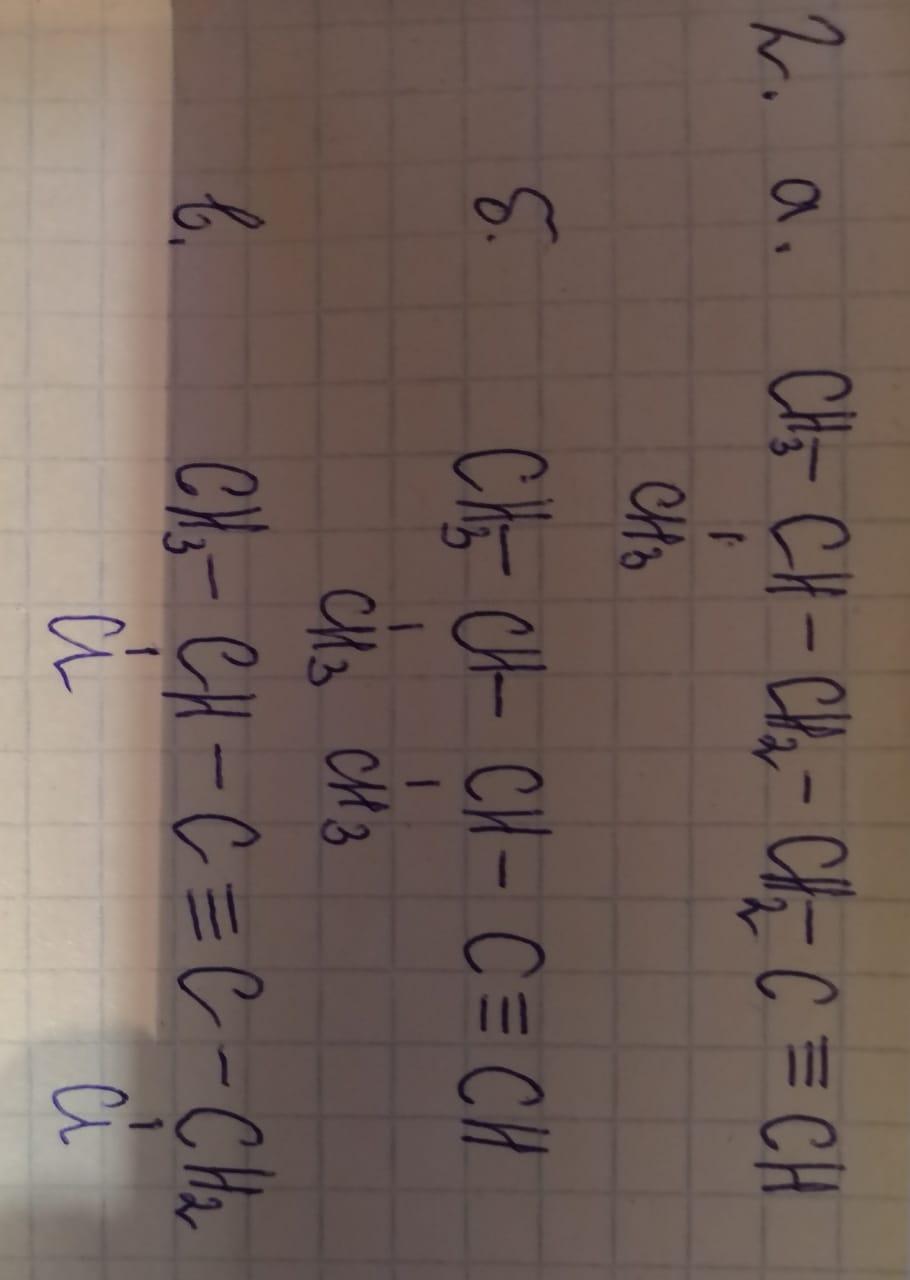 2. а. CH3 - CH - CH2 - CH2 - C ≡ CH
CH3
б. CH3 - CH - CH - C ≡ CH
CH3 CH3
в. CH3 - CH - C ≡ C - CH2
Cl Cl